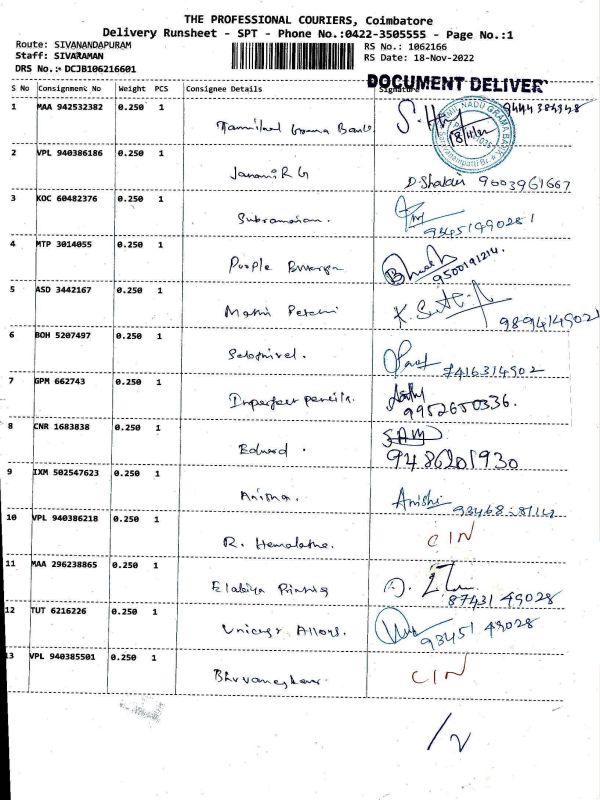 THE PROFESSIONAL COURIERS, Coimbatore
Delivery Runsheet - SPT - Phone No.:0422-3505555 - Page No.:1
Route: SIVANANDAPURAM
Staff: SIVARAMAN
DRS No.: DCJB106216601
RS No.: 1062166
RS Date: 18-Nov-2022
DOCUMENT DELIVER
S No Consignment No Weight PCS Consignee Details Signature
1 MAA 942532382 0.250 1 Tamilnad Grama Bank 18/11/22
2 VPL 940386186 0.250 1 Janani R G 9003961667
3 KOC 60482376 0.250 1 Subramanian. 9345149028
4 MTP 3014055 0.250 1 Purple 9500191214.
5 ASD 3442167 0.250 1 9894149021
6 BOH 5207497 0.250 1 7416314902
7 GPM 662743 0.250 1 Imperfect pencils. 9952650336.
8 CNR 1683838 0.250 1 Edward. SAM 9486201930
9 IXM 502547623 0.250 1 Anisha. Anishi
10 VPL 940386218 0.250 1 R. Hemalatha. CIN
11 MAA 296238865 0.250 1 Printing 87431 49028
12 TUT 6216226 0.250 1 Alloys. 93451 49028
13 VPL 940385501 0.250 1 CIN